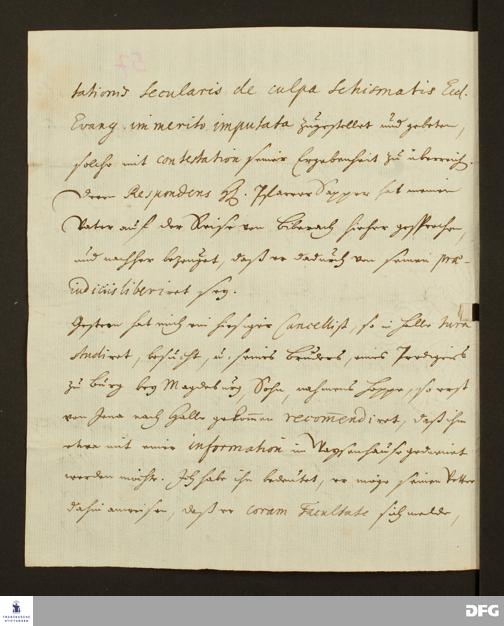 57
tationis secularis de culpa Schismatis Eccl.
Evang. immerito imputata zugestellet und gebeten,
solche mit contestation seiner Ergebenheit zu überreich.
Deren Respondens H. Pfarrer Sapper hat meinen
Vater auf der Reise von Biberach hieher gesprochen,
und nachher bezeuget, daß er dadurch von seinen præ-
iudiciis liberiret sey.
Gestern hat mich ein hiesiger Cancellist, so in Halle iura
studiret, besucht, u. seines Bruders, eines Predigers
zu Burg bey Magdeburg, Sohn, nahmens, so erst
von Jena nach Halle gekommen recommendiret, daß ihm
etwa mit einer information im Waysenhause gedienet
werden möchte. Ich habe ihm bedeutet, er möge seinen Vetter
dahin anweisen, daß er coram Facultate sich melde,
FRANCKESCHE
STIFTUNGEN
DFG